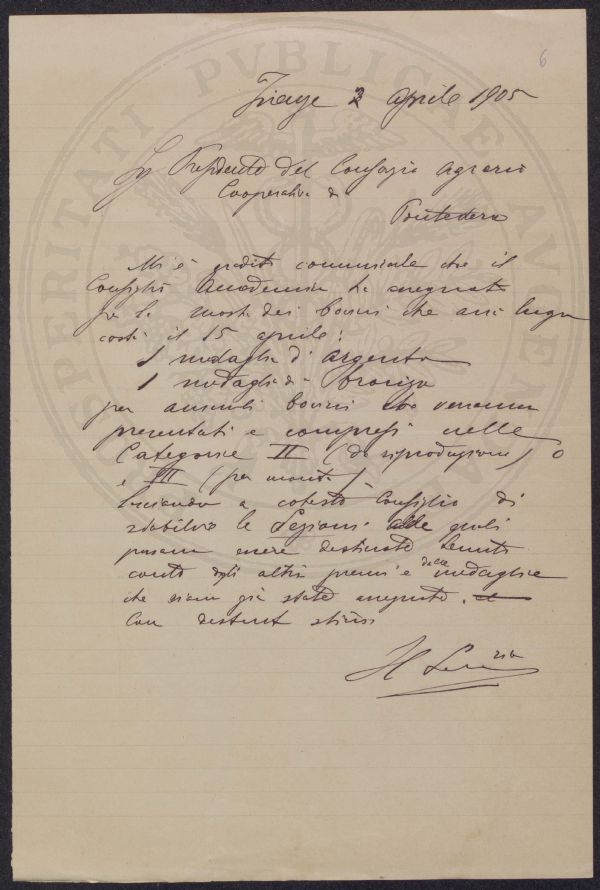 6
Firenze 3 Aprile 1905
Sig Presidente del Consorzio Agrario
Cooperativo di
Pontedera
Mi è gradito comunicare che il
Consiglio Accademico ha assegnato
per la mostra dei bovini che avrà luogo
costà il 15 aprile:
1 medaglia d'argento
1 medaglia di bronzo
per animali bovini che verranno
presentati e compresi nelle
Categorie II (da riproduzione) o
e III (per monta)
lasciando a cotesto Consiglio di
stabilire le Sezioni alle quali
possano essere destinate tenuto
conto degli altri premi e delle medaglie
che siano già state assegnate.
Con distinta stima
Il
PROSPERITATI PVBLICAE AVGENDAE